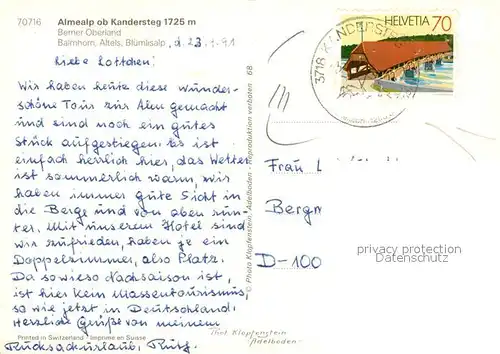 70716
Almealp ob Kandersteg 1725 m
Berner Oberland
Balmhorn, Altels, Blümlisalp
, d. 23.9.91
Liebe Lottchen!
Wir haben heute diese wunder-
schöne Tour zur Alm gemacht
und sind noch ein gutes
Stück aufgestiegen. Es ist
einfach herrlich hier, das Wetter
ist sommerlich warm, wir
haben immer gute Sicht in
die Berge und von oben run-
ter. Mit unserem Hotel sind
wir zufrieden, haben je ein
Doppelzimmer, also Platz.
Da sowieso Nachsaison ist,
ist hier kein Massentourismus,
so wie jetzt in Deutschland.
Herzliche Grüße von meinem
Rucksackurlaub,
Printed in Switzerland - Imprimé en Suisse
© Photo Klopfenstein, Adelboden - Reproduktion verboten 68
HELVETIA 70
3718 KANDERSTEG
Frau L
Bergm
D-100
privacy protection
Datenschutz
Phot Klopfenstein
Adelboden